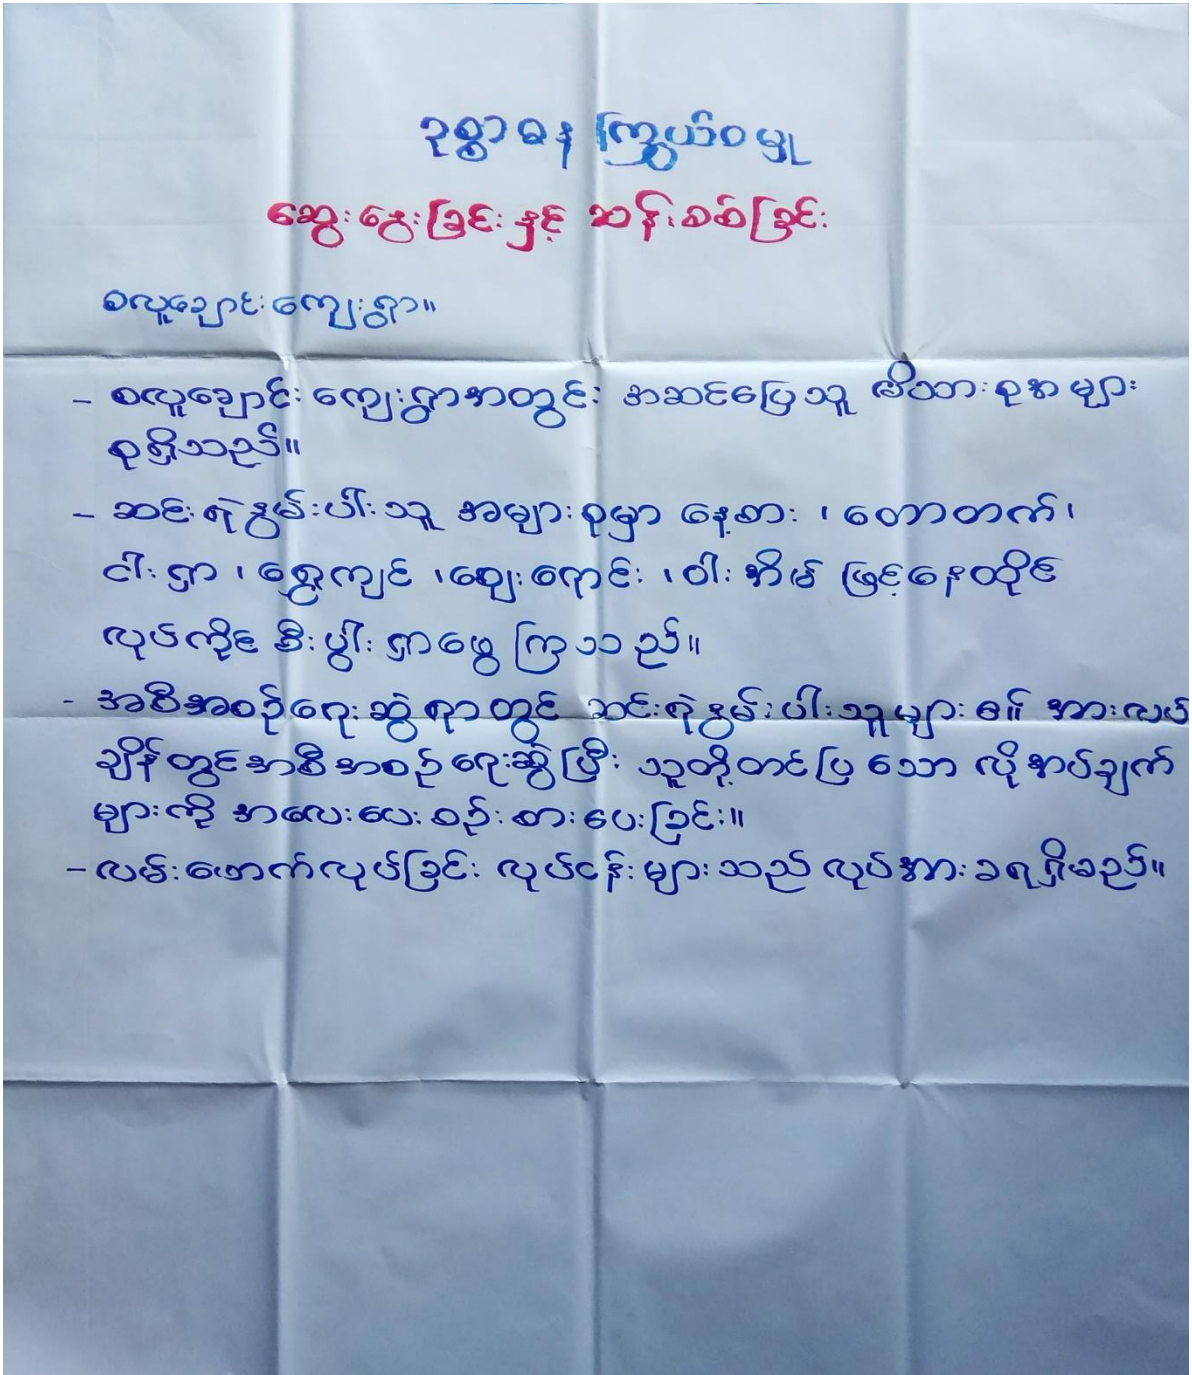 ဥစ္စာဓန ကြွယ်ဝမှု
ဆွေးနွေးခြင်းနှင့် ဆန်းစစ်ခြင်း
စလူချောင်းကျေးရွာ။
- စလူချောင်း ကျေးရွာအတွင်း အဆင်ပြေသူ မိသားစုအများ
စုရှိသည်။
- ဆင်းရဲနွမ်းပါးသူ အများစုမှာ နေ့စား ၊ တောတက်၊
ငါးရှာ ၊ ရွှေကျင် ၊ဈေးရောင်း ၊ ဝါးအိမ် ဖြင့်နေထိုင်
လုပ်ကိုင် စီးပွါးရှာဖွေ ကြသည်။
- အစီအစဉ်ရေးဆွဲ ရာတွင် ဆင်းရဲနွမ်းပါးသူများ ၏ အားလပ်
ချိန်တွင်အစီအစဉ် ရေးဆွဲပြီး သူတို့တင်ပြ သော လိုအပ်ချက်
များကို အလေးပေး စဉ်းစားပေးခြင်း။
- လမ်းဖောက်လုပ်ခြင်း လုပ်ငန်းများသည် လုပ်အားခရရှိမည်။